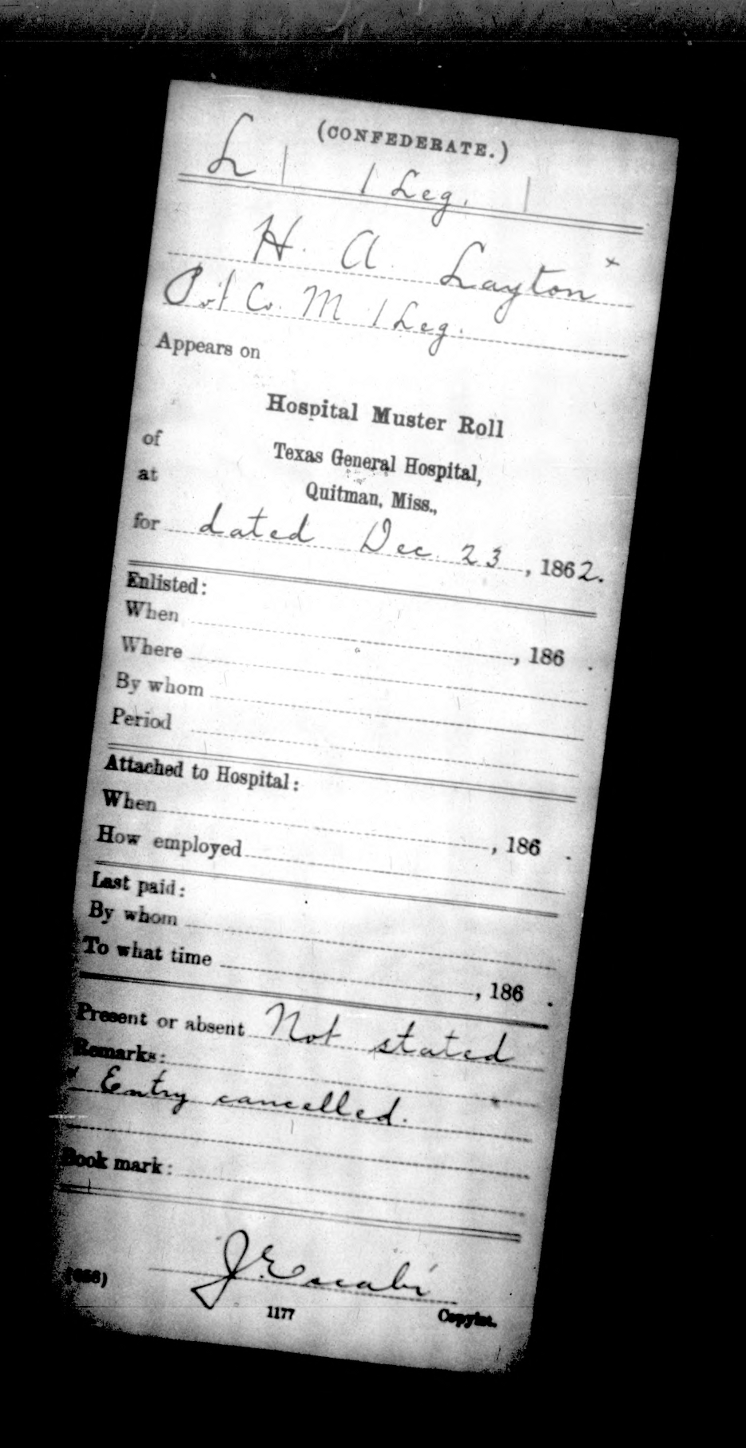 (CONFEDERATE.)
L | 1 Leg. |
H. A. Layton ×
Pvt Co. M 1 Leg.
Appears on
Hospital Muster Roll
of Texas General Hospital,
at Quitman, Miss.,
for dated Dec. 23, 1862.
Enlisted:
When , 186 .
Where
By whom
Period
Attached to Hospital:
When , 186 .
How employed
Last paid:
By whom
To what time , 186 .
Present or absent Not stated
Remarks:
× Entry cancelled.
Book mark:
1177
Copyist.